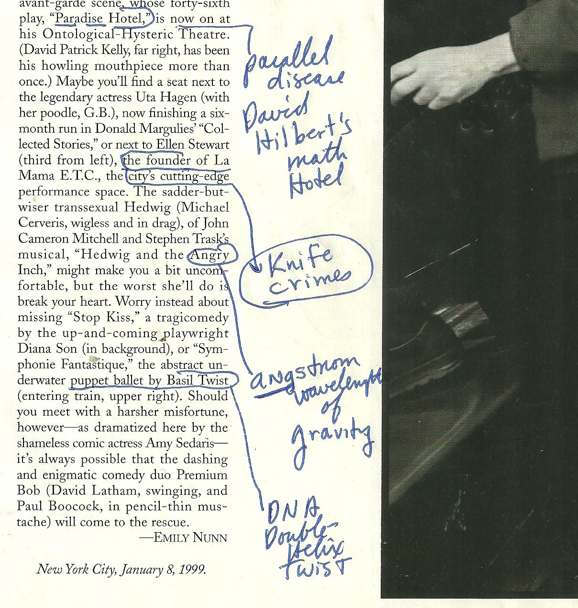 avant-garde scene, whose forty-sixth
play, “Paradise Hotel,” is now on at
his Ontological-Hysteric Theatre.
(David Patrick Kelly, far right, has been
his howling mouthpiece more than
once.) Maybe you’ll find a seat next to
the legendary actress Uta Hagen (with
her poodle, G.B.), now finishing a six-
month run in Donald Margulies’ “Col-
lected Stories,” or next to Ellen Stewart
(third from left), the founder of La
Mama E.T.C., the city’s cutting-edge
performance space. The sadder-but-
wiser transsexual Hedwig (Michael
Cerveris, wigless and in drag), of John
Cameron Mitchell and Stephen Trask’s
musical, “Hedwig and the Angry
Inch,” might make you a bit uncom-
fortable, but the worst she’ll do is
break your heart. Worry instead about
missing “Stop Kiss,” a tragicomedy
by the up-and-coming playwright
Diana Son (in background), or “Sym-
phonie Fantastique,” the abstract un-
derwater puppet ballet by Basil Twist
(entering train, upper right). Should
you meet with a harsher misfortune,
however—as dramatized here by the
shameless comic actress Amy Sedaris—
it’s always possible that the dashing
and enigmatic comedy duo Premium
Bob (David Latham, swinging, and
Paul Boocock, in pencil-thin mus-
tache) will come to the rescue.
—EMILY NUNN
New York City, January 8, 1999.
parallel
disease
David
Hilbert's
math
Hotel
Knife
crimes
angstrom
wavelength
of
gravity
DNA
Double-
Helix
TWIST